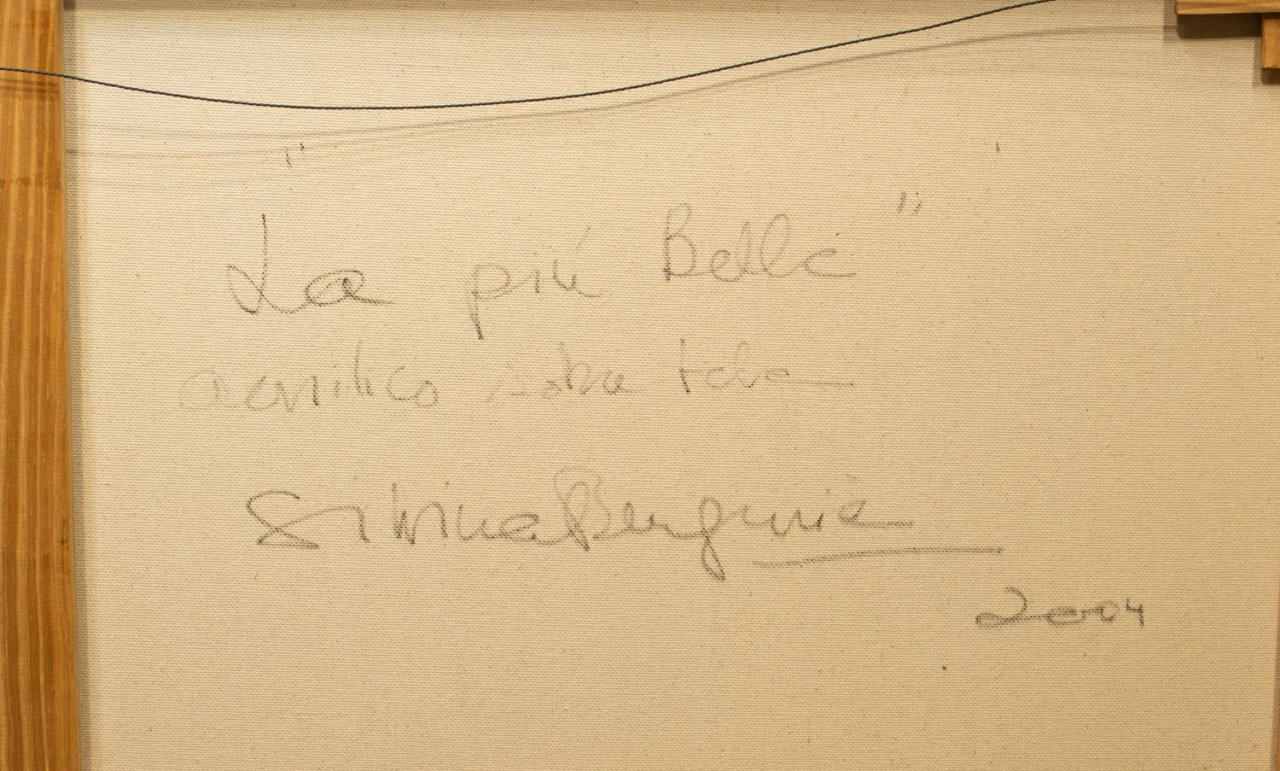 "La più Bella"
acrilico sobre tela
Silvina Benguria
2004